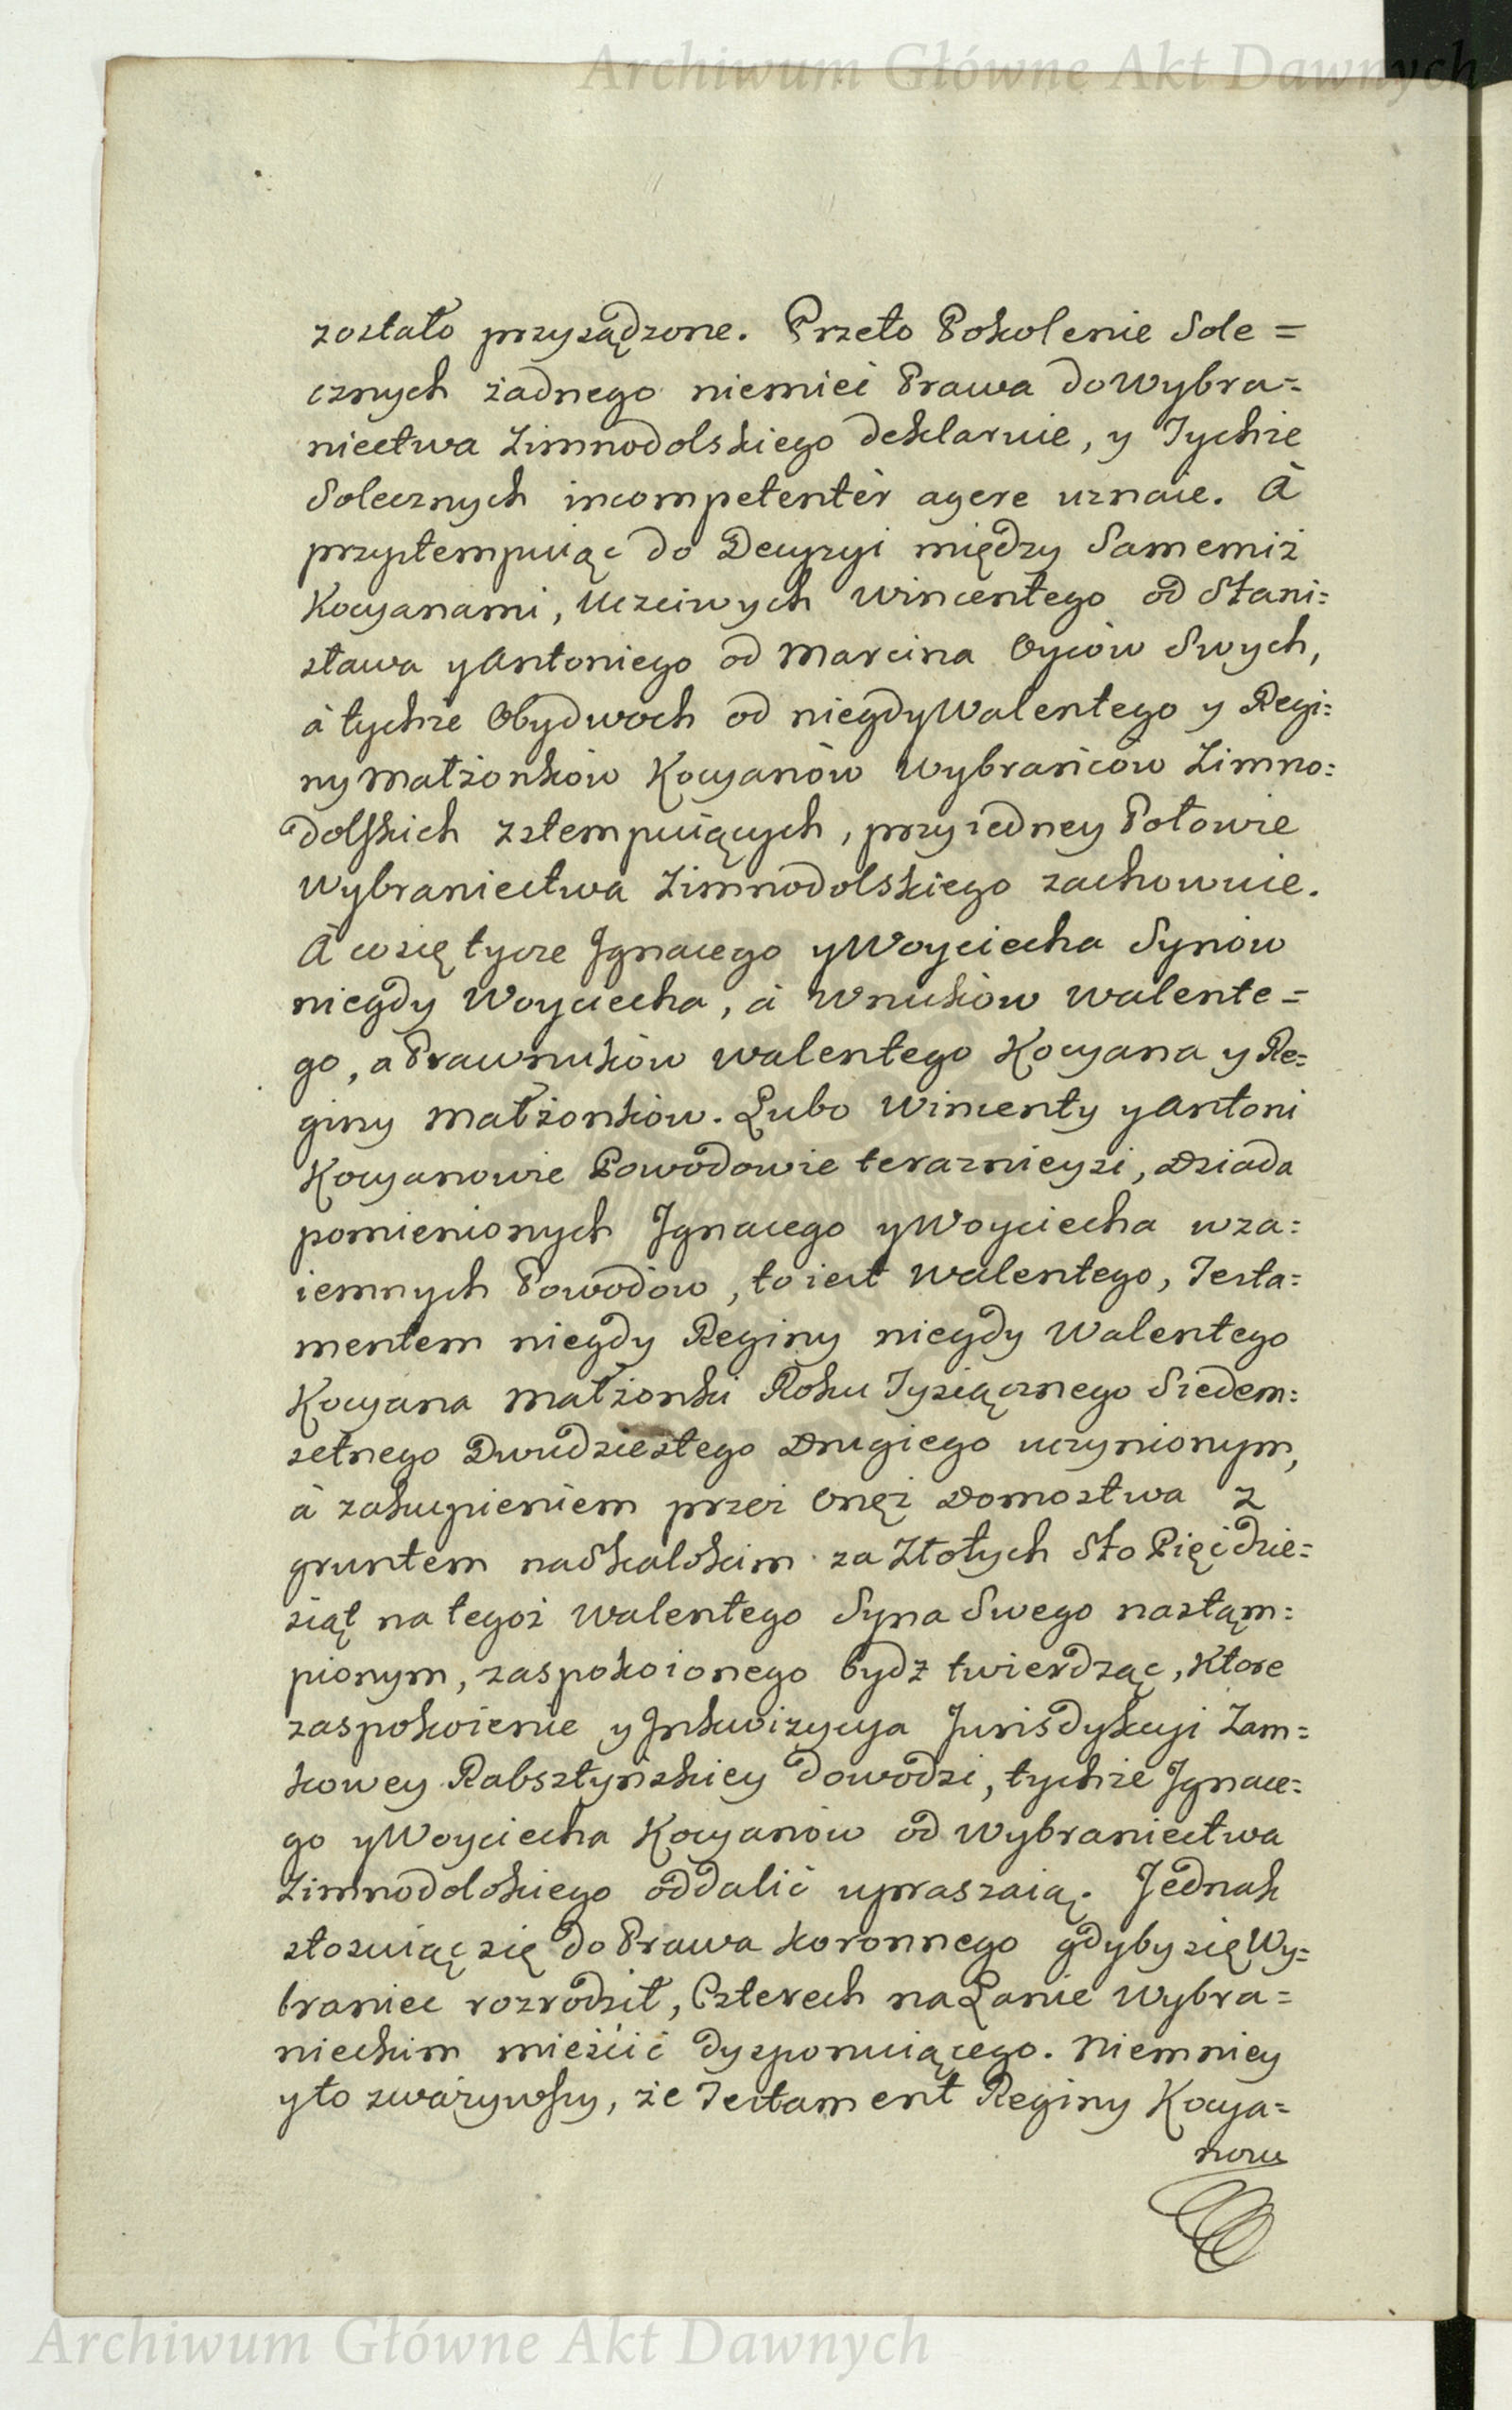 Archiwum Główne Akt Dawnych
zostało przysądzone. Przeto Pokolenie Sole=
cznych żadnego niemieć Prawa do Wybra=
niectwa Zimnodolskiego deklaruie, y Tychże
Solecznych incompetentèr agere uznaie. À
przystempuiąc do Decyzyi między Samemiż
Kocyanami, Uczciwych Wincentego od Stani=
sława y Antoniego od Marcina Oyców Swych,
à tychże Obydwoch od niegdy Walentego y Regi=
ny Małżonków Kocyanów Wybrańców Zimno=
dolskich zstempuiących, przy iedney Połowie
Wybraniectwa Zimnodolskiego zachowuie.
À co się tycze Ignacego y Woyciecha Synów
niegdy Woyciecha, à Wnuków Walente=
go, a Prawnuków Walentego Kocyana y Re=
giny Małżonków. Lubo Wincenty y Antoni
Kocyanowie Powodowie terazнieysi, Dziada
pomienionych Ignacego y Woyciecha wza=
iemnych Powodów, to iest Walentego, Testa=
mentem niegdy Reginy niegdy Walentego
Kocyana Małżonki Roku Tysiącznego Siedem=
setnego Dwudziestego Drugiego uczynionym,
à zakupieniem przez Onęż Domostwa z
gruntem na Skalskim za Złotych Sto Pięćdzie=
siąt na tegoż Walentego Syna Swego nastąm=
pionym, zaspokoionego bydź twierdząc, Które
zaspokoienie y Inkwizycya Jurisdykcyi Zam=
kowey Rabsztyńskiey dowodzi, tychże Ignace=
go y Woyciecha Kocyanów od Wybraniectwa
Zimnodolskiego oddalić upraszaią. Jednak
stosuiąc się do Prawa koronnego gdyby się Wy=
braniec rozrodził, Czterech na Łanie Wybra=
nieckim mieścić dysponuiącego. Niemniey
y to zważywszy, że Testament Reginy Kocya=
nowe
Archiwum Główne Akt Dawnych